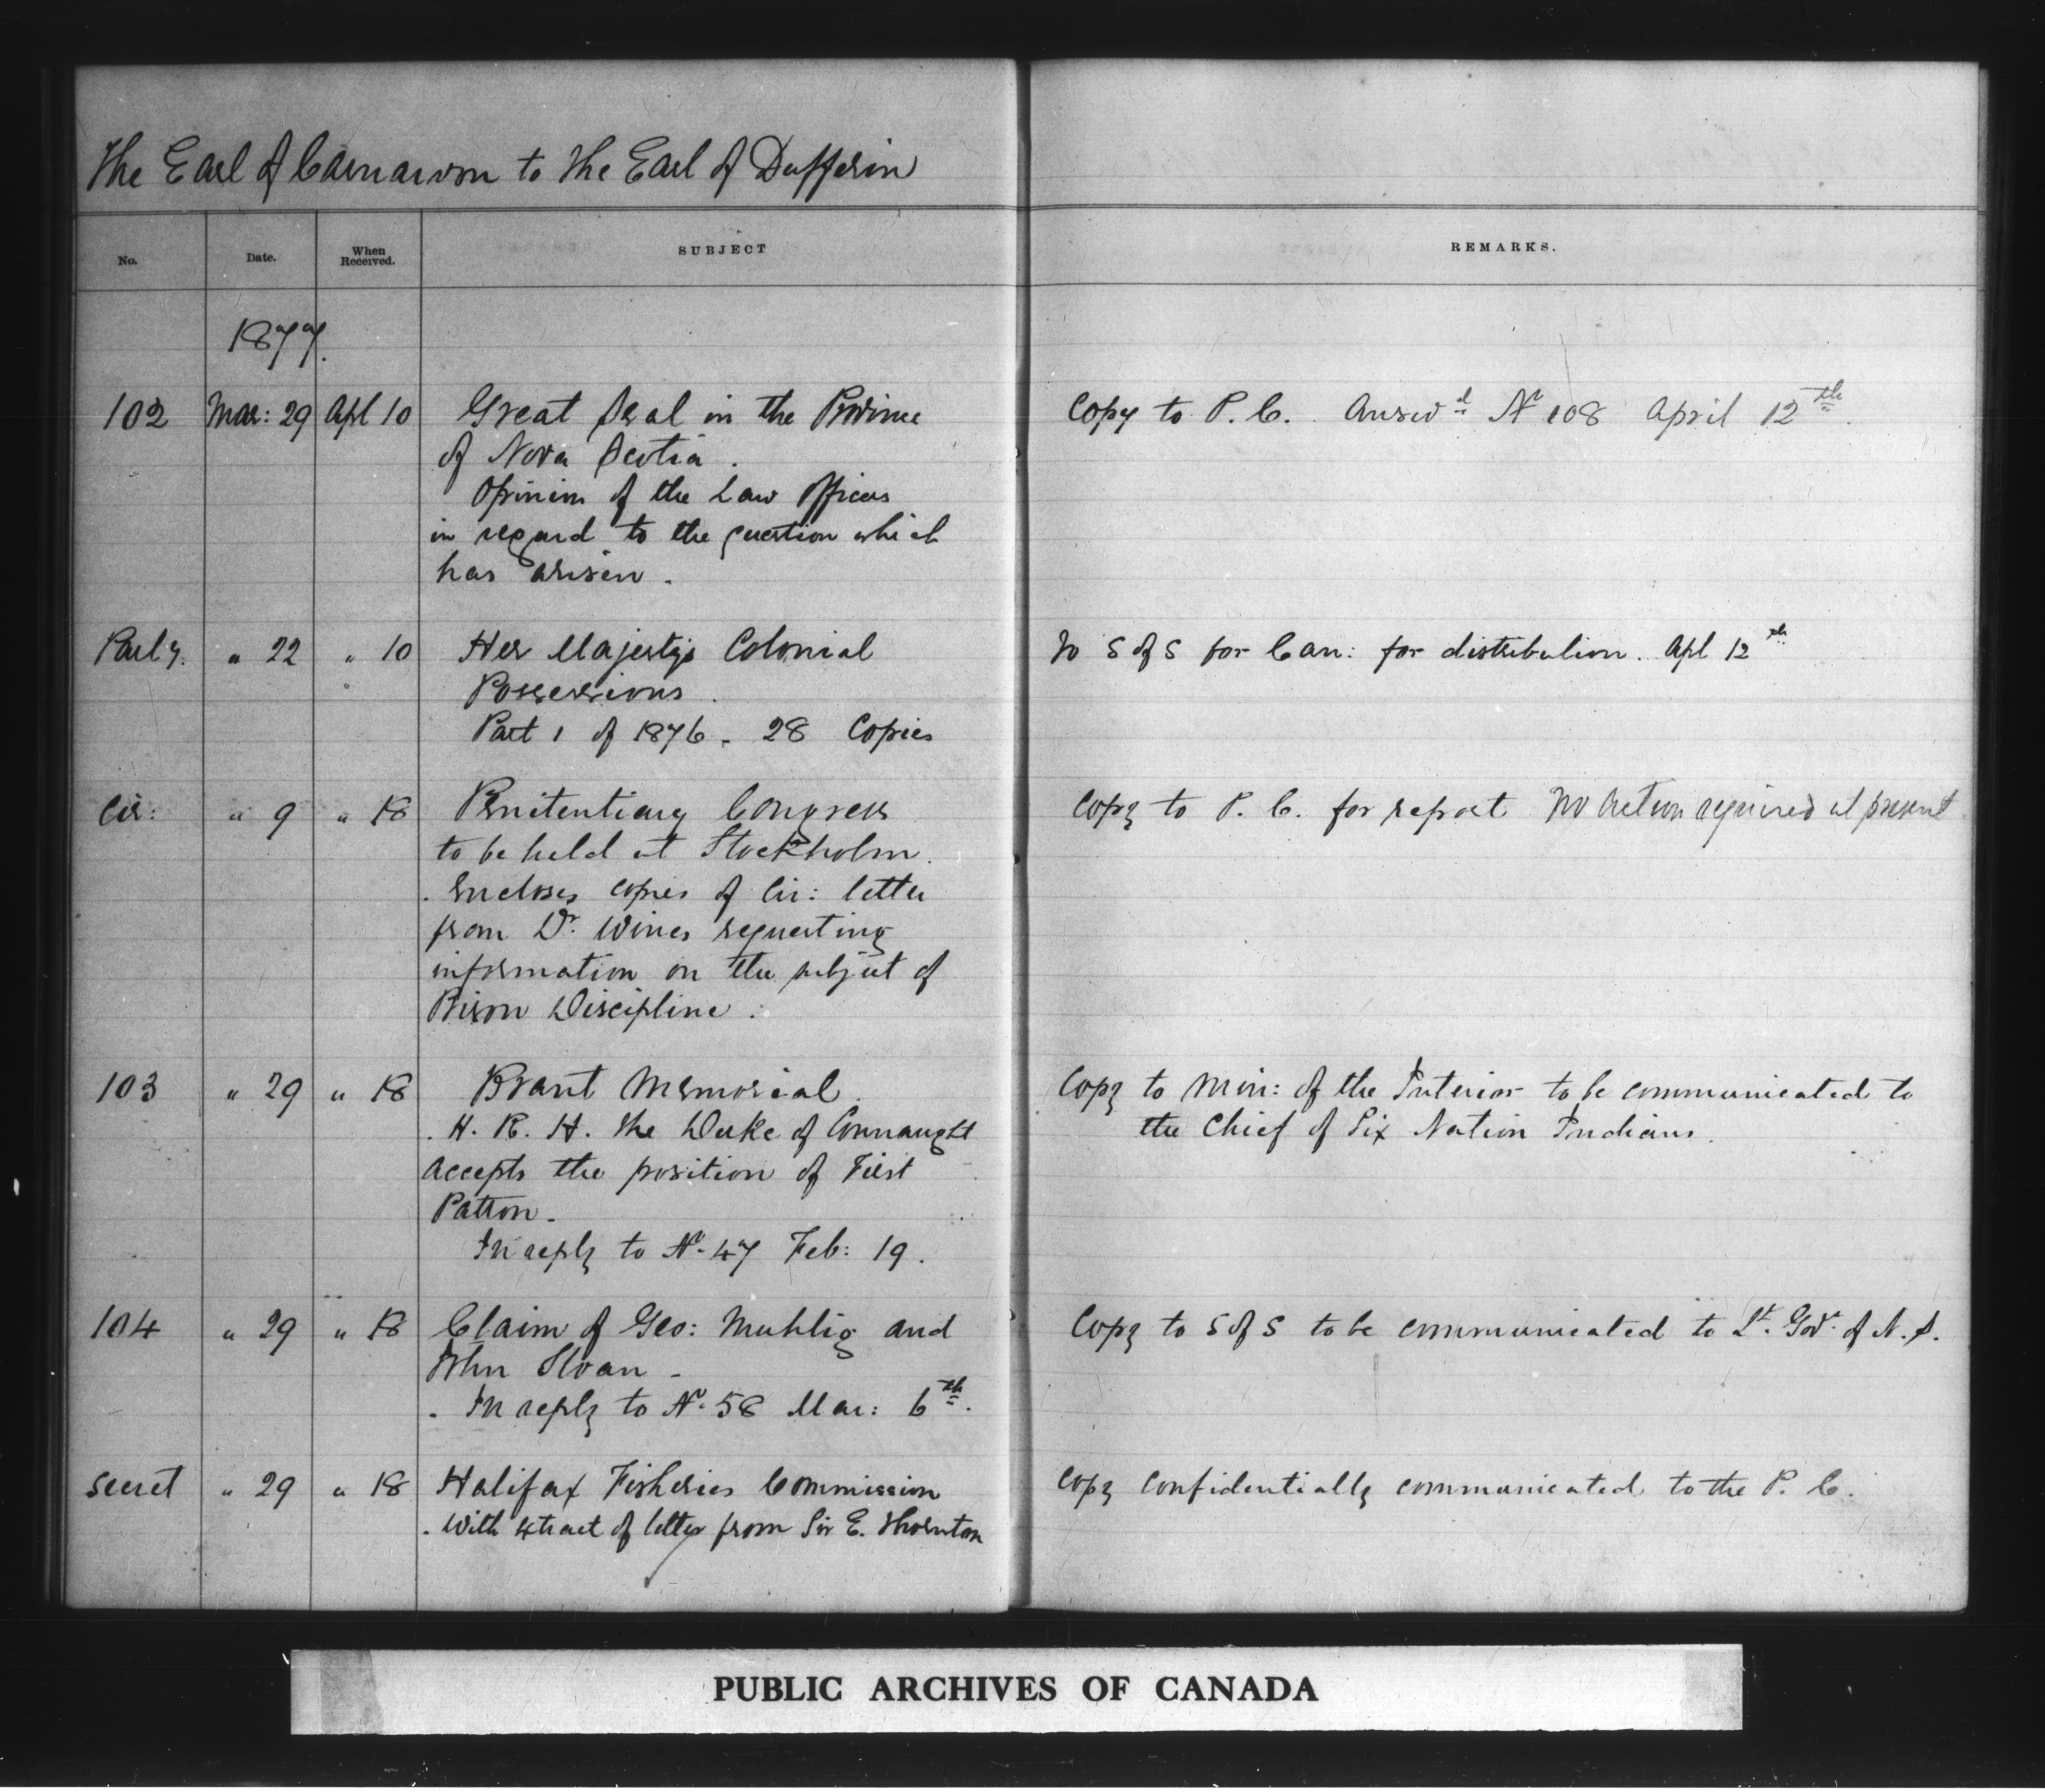 The Earl of Carnarvon to The Earl of Dufferin
No. Date. When Received. SUBJECT REMARKS.
1877.
102 Mar: 29 Apl 10 Great Seal in the Province Copy to P. C. Answd No 108 April 12th.
of Nova Scotia.
Opinion of the Law Officers
in regard to the question which
has arisen.
Parly. " 22 " 10 Her Majesty's Colonial To S of S for Can: for distribution. Apl 12th
Possessions.
Part 1 of 1876. 28 Copies
Cir: " 9 " 18 Penitentiary Congress Copy to P. C. for report No action required at present
to be held at Stockholm.
. Encloses copies of Cir: letter
from Dr. Wines requesting
information on the subject of
Prison Discipline.
103 " 29 " 18 Brant Memorial. Copy to Min: of the Interior to be communicated to
. H. R. H. The Duke of Connaught the Chief of Six Nation Indians.
accepts the position of First
Patron.
In reply to No. 47 Feb: 19.
104 " 29 " 18 Claim of Geo: Muhlig and Copy to S of S to be communicated to Lt. Govr. of N. S.
John Sloan -
. In reply to No. 58 Mar: 6th.
Secret " 29 " 18 Halifax Fisheries Commission Copy confidentially communicated to the P. C.
. With extract of letter from Sir E. Thornton
PUBLIC ARCHIVES OF CANADA